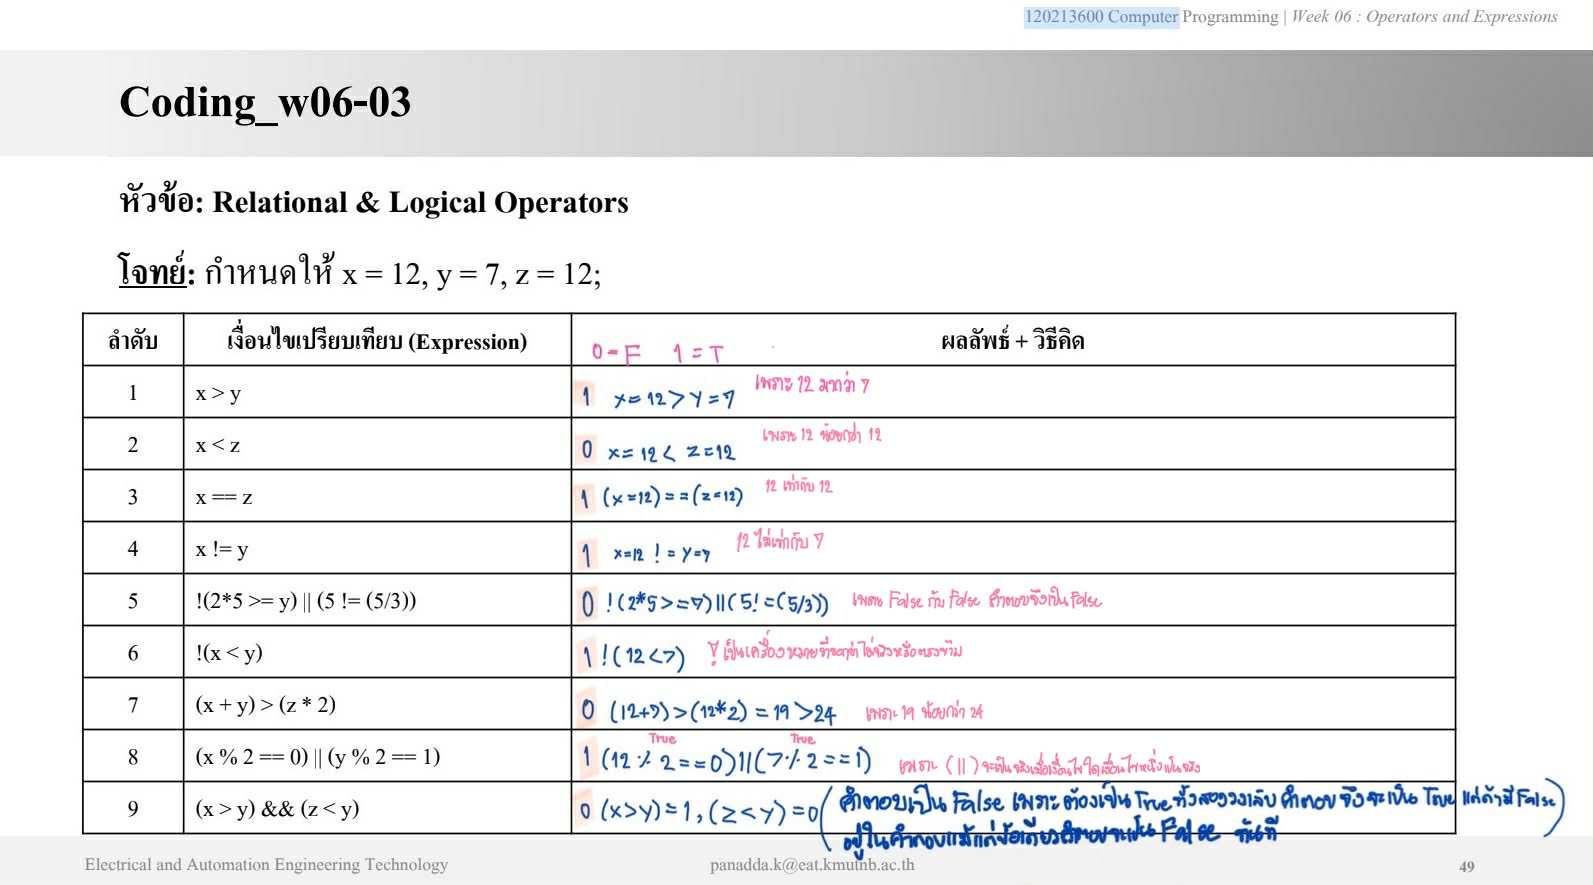 120213600 Computer Programming | Week 06 : Operators and Expressions
Coding_w06-03
หัวข้อ: Relational & Logical Operators
โจทย์: กำหนดให้ x = 12, y = 7, z = 12;
ลำดับ เงื่อนไขเปรียบเทียบ (Expression) 0 = F 1 = T ผลลัพธ์ + วิธีคิด
1 x > y 1 x = 12 > y = 7 เพราะ 12 มากกว่า 7
2 x < z 0 x = 12 < z = 12 เพราะ 12 น้อยกว่า 12
3 x == z 1 (x = 12) = = (z = 12) 12 เท่ากับ 12
4 x != y 1 x = 12 ! = y = 7 12 ไม่เท่ากับ 7
5 !(2*5 >= y) || (5 != (5/3)) 0 !(2*5 >= 7) || (5! = (5/3)) เพราะ False กับ False คำตอบจึงเป็น False
6 !(x < y) 1 !(12 < 7) ! เป็นเครื่องหมายที่บอกว่าไม่จริงหรือตรงข้าม
7 (x + y) > (z * 2) 0 (12+7) > (12*2) = 19 > 24 เพราะ 19 น้อยกว่า 24
True True
8 (x % 2 == 0) || (y % 2 == 1) 1 (12 % 2 = = 0) || (7 % 2 = = 1) เพราะ ( || ) จะเป็นจริงเมื่อเงื่อนไขใดเงื่อนไขหนึ่งเป็นจริง
9 (x > y) && (z < y) 0 (x > y) = 1, (z < y) = 0 (คำตอบเป็น False เพราะต้องเป็น True ทั้งสองวงเล็บ คำตอบ จึงจะเป็น True แต่ถ้ามี False
อยู่ในคำตอบแม้แต่ข้อเดียวคำตอบจะเป็น False ทันที)
Electrical and Automation Engineering Technology panadda.k@eat.kmutnb.ac.th 49